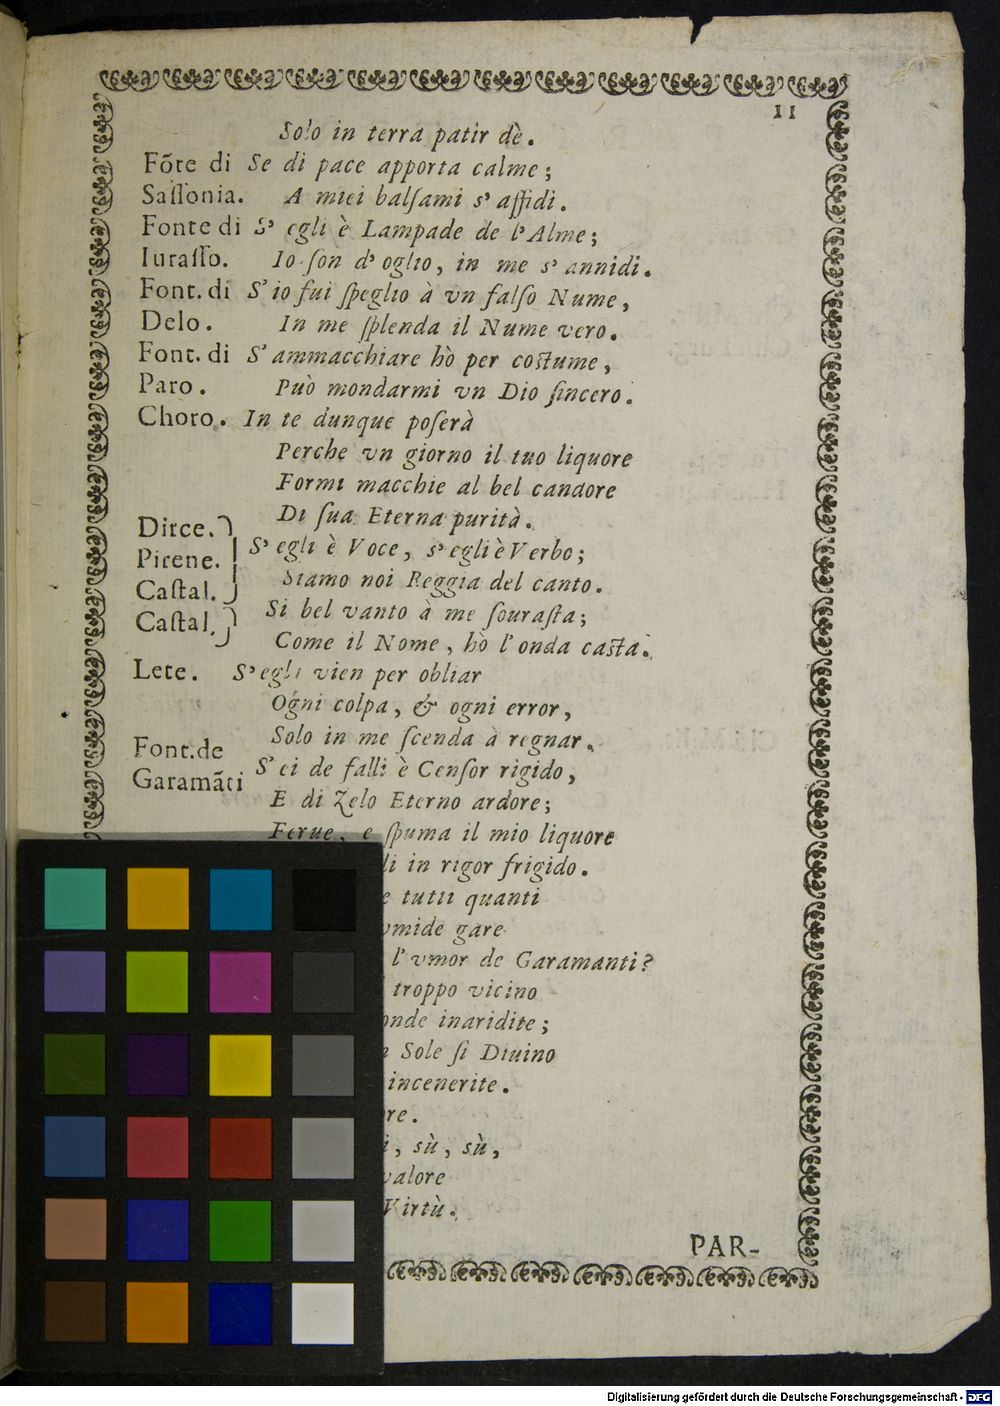 11
Solo in terra patir dè.
Fōte di Se di pace apporta calme;
Saſſonia. A miei balſami s' affidi.
Fonte di S' egli è Lampade de l'Alme;
Iuraſſo. Io ſon d' oglio, in me s' annidi.
Font. di S' io fui ſpeglio à vn falſo Nume,
Delo. In me ſplenda il Nume vero.
Font. di S' ammacchiare hò per costume,
Paro. Può mondarmi vn Dio ſincero.
Choro. In te dunque poſerà
Perche vn giorno il tuo liquore
Formi macchie al bel candore
Di ſua Eterna purità.
Dirce.
Pirene. S' egli è Voce, s' egli è Verbo;
Caſtal. Siamo noi Reggia del canto.
Caſtal. Si bel vanto à me ſouraſta;
Come il Nome, hò l' onda casta.
Lete. S' egli vien per obliar
Ogni colpa, & ogni error,
Solo in me ſcenda à regnar.
Font. de S' ei de falli è Cenſor rigido,
Garamāti E di Zelo Eterno ardore;
Ferue, e ſpuma il mio liquore
li in rigor frigido.
e tutti quanti
vmide gare
l' vmor de Garamanti?
troppo vicino
onde inaridite;
Sole ſi Diuino
incenerite.
re.
i, sù, sù,
valore
Virtù.
PAR-
Digitalisierung gefördert durch die Deutsche Forschungsgemeinschaft - DFG